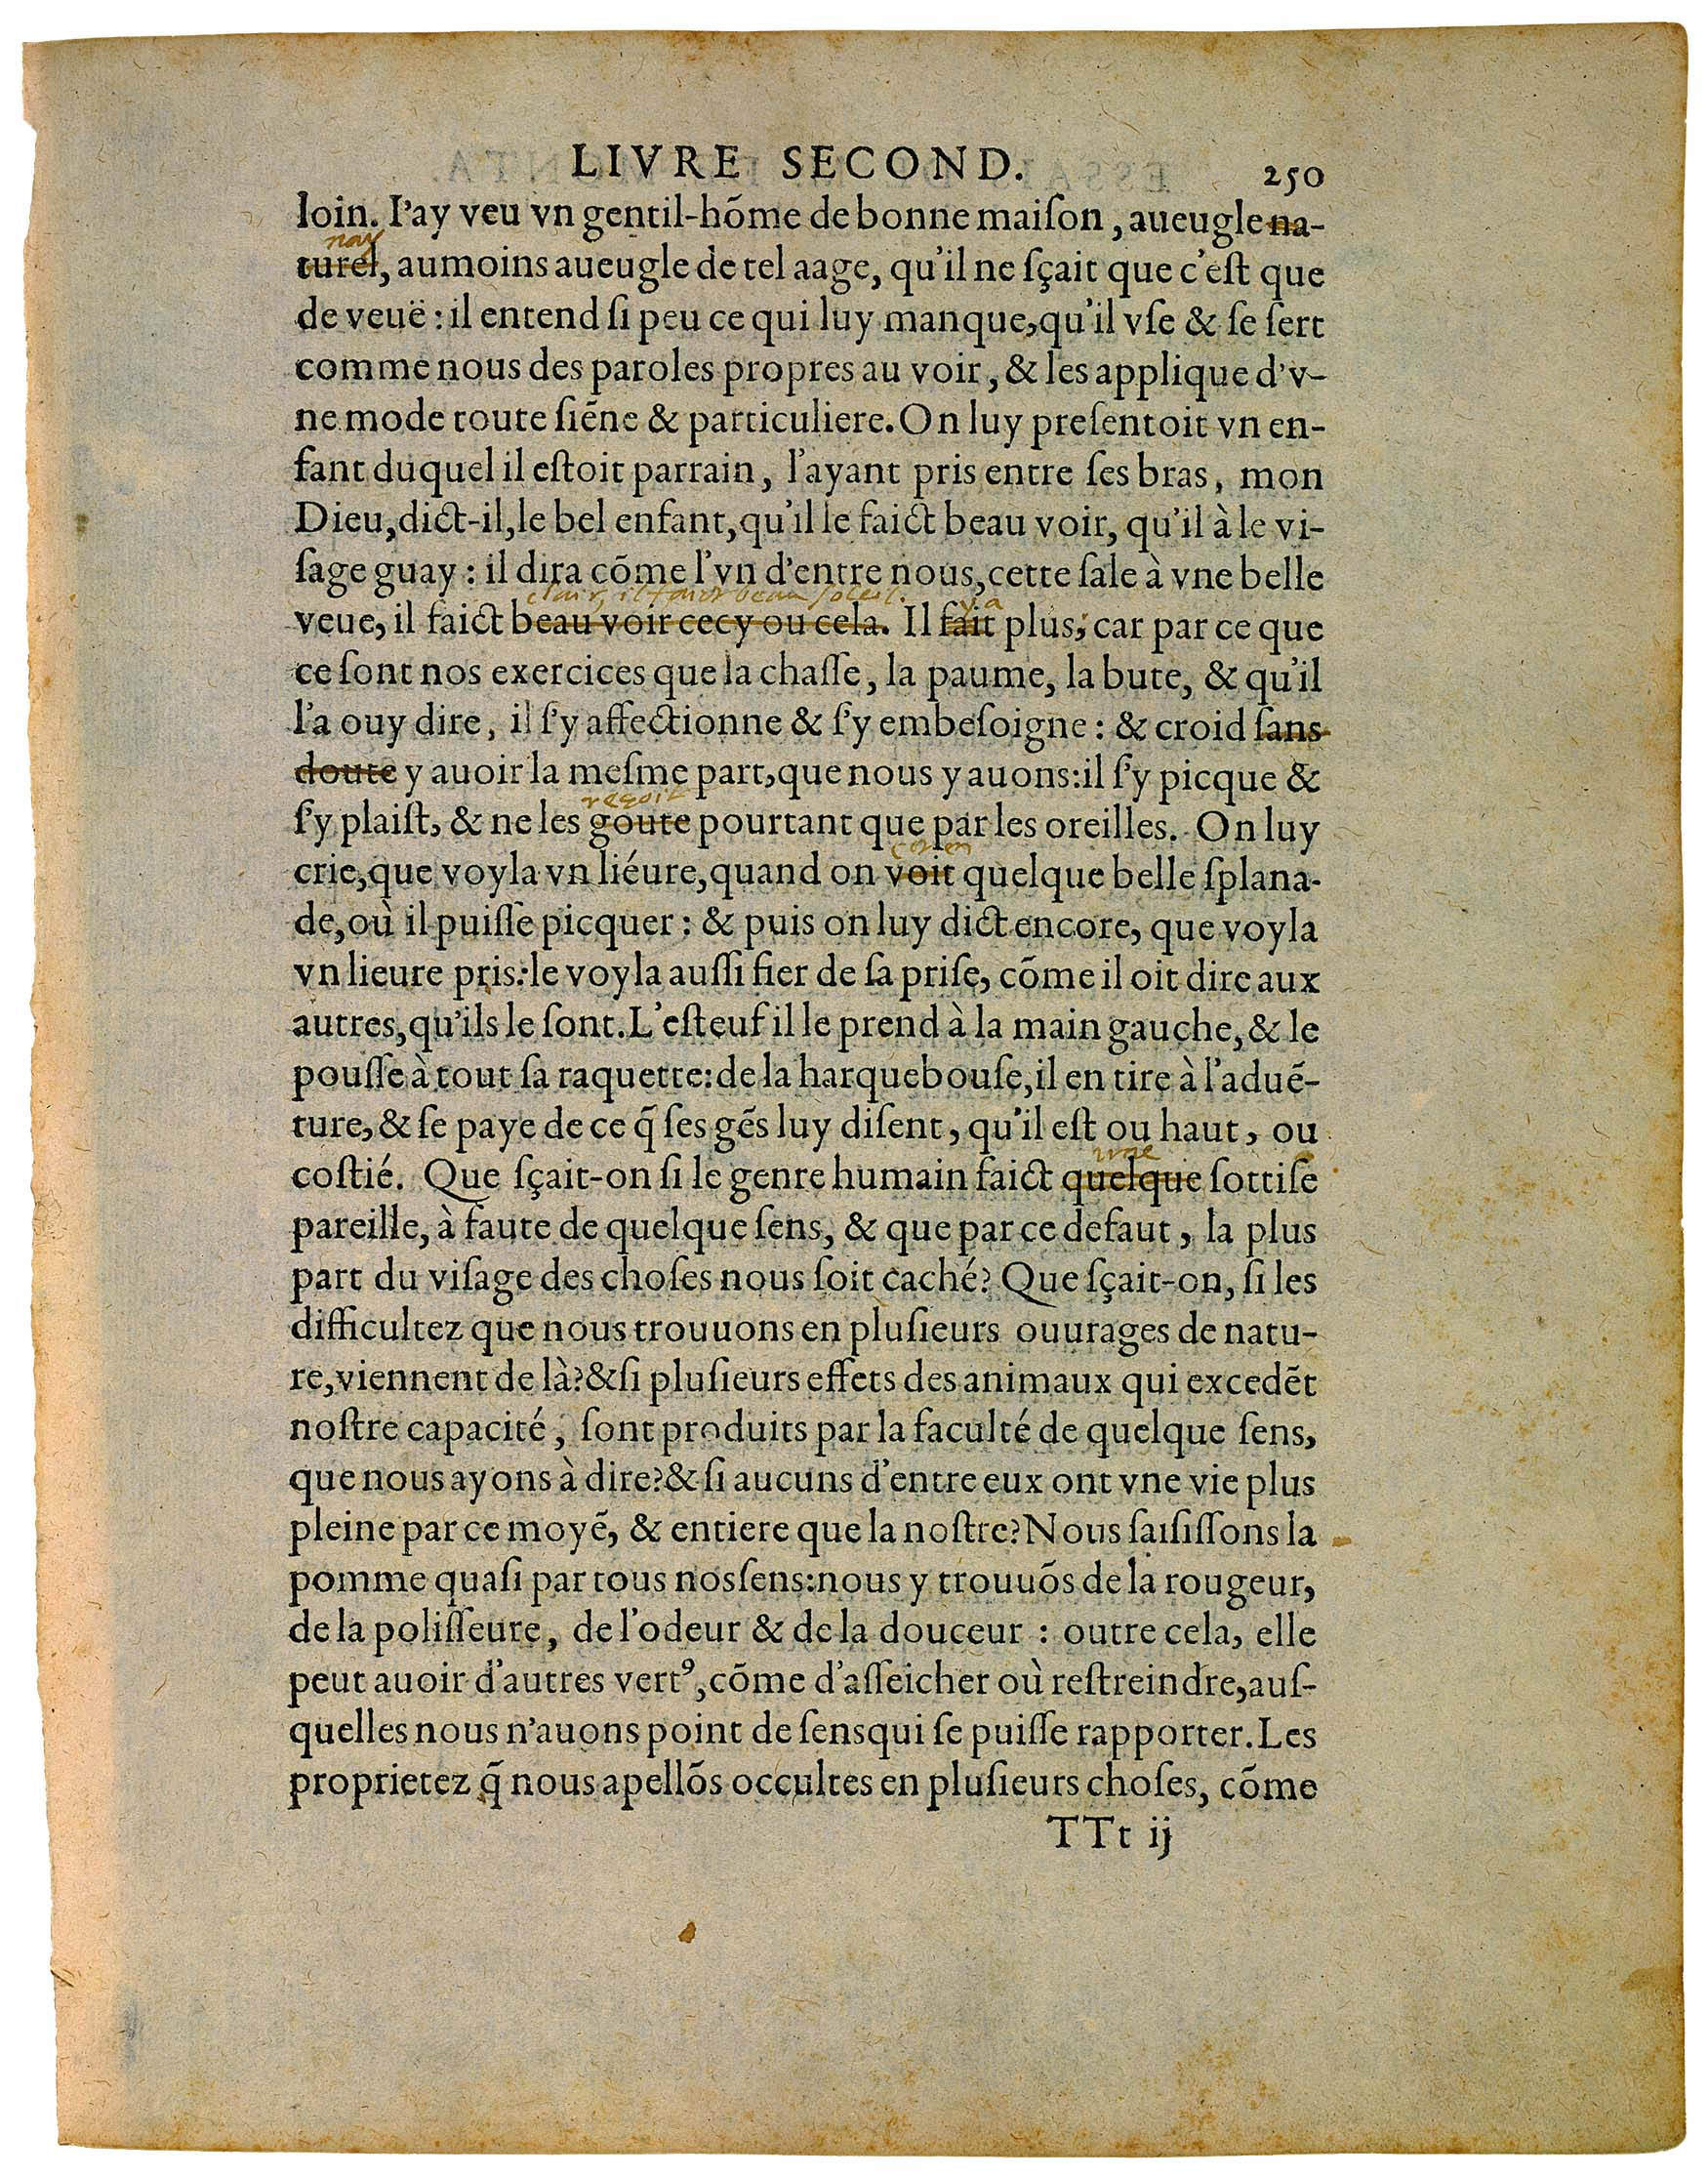 LIVRE SECOND. 250
loin. I'ay veu vn gentil-hõme de bonne maiſon, aueugle na-
nay
turel, aumoins aueugle de tel aage, qu'il ne ſçait que c'eſt que
de veuë: il entend ſi peu ce qui luy manque, qu'il vſe & ſe ſert
comme nous des paroles propres au voir, & les applique d'v-
ne mode toute ſiẽne & particuliere. On luy preſentoit vn en-
fant duquel il eſtoit parrain, l'ayant pris entre ſes bras, mon
Dieu, dict-il, le bel enfant, qu'il le faict beau voir, qu'il à le vi-
ſage guay: il dira cõme l'vn d'entre nous, cette ſale à vne belle
clair, il faict beau soleil. y a
veue, il faict beau voir cecy ou cela. Il fait plus; car par ce que
ce ſont nos exercices que la chaſſe, la paume, la bute, & qu'il
l'a ouy dire, il ſ'y affectionne & ſ'y embeſoigne: & croid ſans
doute y auoir la meſme part, que nous y auons: il ſ'y picque &
reçoit
ſ'y plaiſt, & ne les goute pourtant que par les oreilles. On luy
crie, que voyla vn liéure, quand on voit quelque belle ſplana-
de, où il puiſſe picquer: & puis on luy dict encore, que voyla
vn lieure pris: le voyla auſſi fier de ſa priſe, cõme il oit dire aux
autres, qu'ils le ſont. L'eſteuf il le prend à la main gauche, & le
pouſſe à tout ſa raquette: de la harquebouſe, il en tire à l'aduẽ-
ture, & ſe paye de ce q̃ ſes gẽs luy diſent, qu'il eſt ou haut, ou
une
coſtié. Que ſçait-on ſi le genre humain faict quelque ſottiſe
pareille, à faute de quelque ſens, & que par ce defaut, la plus
part du viſage des choſes nous ſoit caché? Que ſçait-on, ſi les
difficultez que nous trouuons en pluſieurs ouurages de natu-
re, viennent de là? & ſi pluſieurs effets des animaux qui excedẽt
noſtre capacité, ſont produits par la faculté de quelque ſens,
que nous ayons à dire? & ſi aucuns d'entre eux ont vne vie plus
pleine par ce moyẽ, & entiere que la noſtre? Nous ſaiſiſſons la
pomme quaſi par tous nos ſens: nous y trouuõs de la rougeur,
de la poliſſeure, de l'odeur & de la douceur: outre cela, elle
peut auoir d'autres vertꝰ, cõme d'aſſeicher où reſtreindre, auſ-
quelles nous n'auons point de ſens qui ſe puiſſe rapporter. Les
proprietez q̃ nous apellõs occultes en pluſieurs choſes, cõme
TTt ij